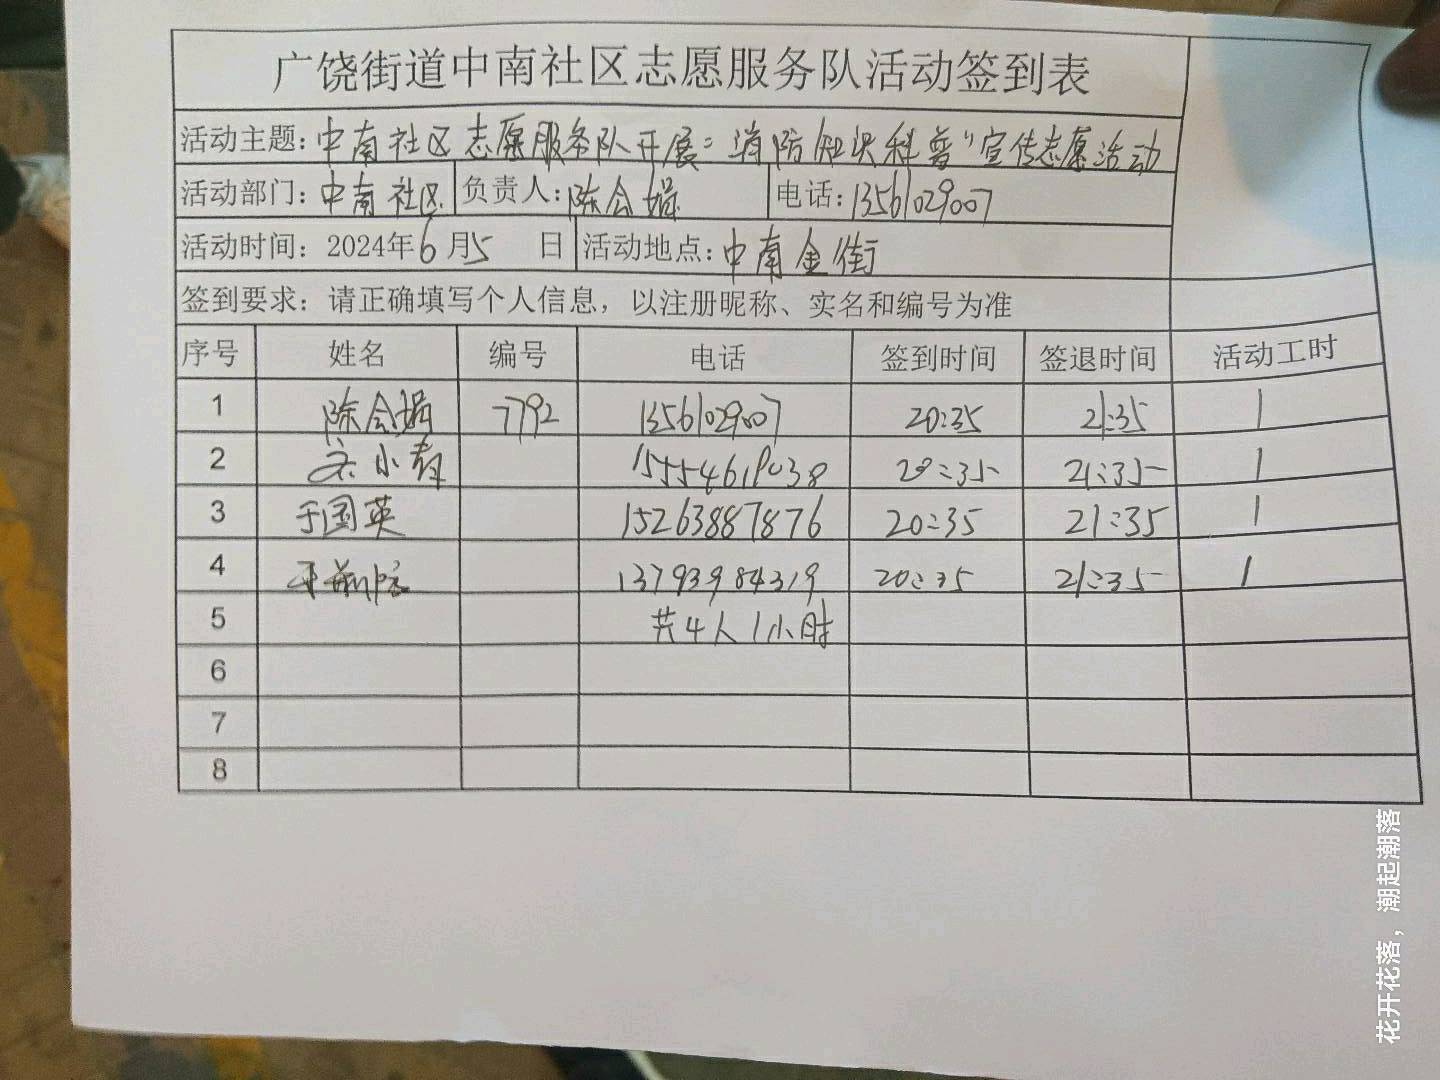 广饶街道中南社区志愿服务队活动签到表
活动主题:中南社区志愿服务队开展“消防知识科普”宣传志愿活动
活动部门:中南社区 负责人:陈会娟 电话:13561029007
活动时间：2024年6月5日 活动地点:中南金街
签到要求：请正确填写个人信息，以注册昵称、实名和编号为准
序号 姓名 编号 电话 签到时间 签退时间 活动工时
1 陈会娟 7792 13561029007 20:35 21:35 1
2 20:35 21:35 1
3 于国英 15263887876 20:35 21:35 1
4 13793984319 20:35 21:35 1
5 共4人1小时
6
7
8
花开花落，潮起潮落